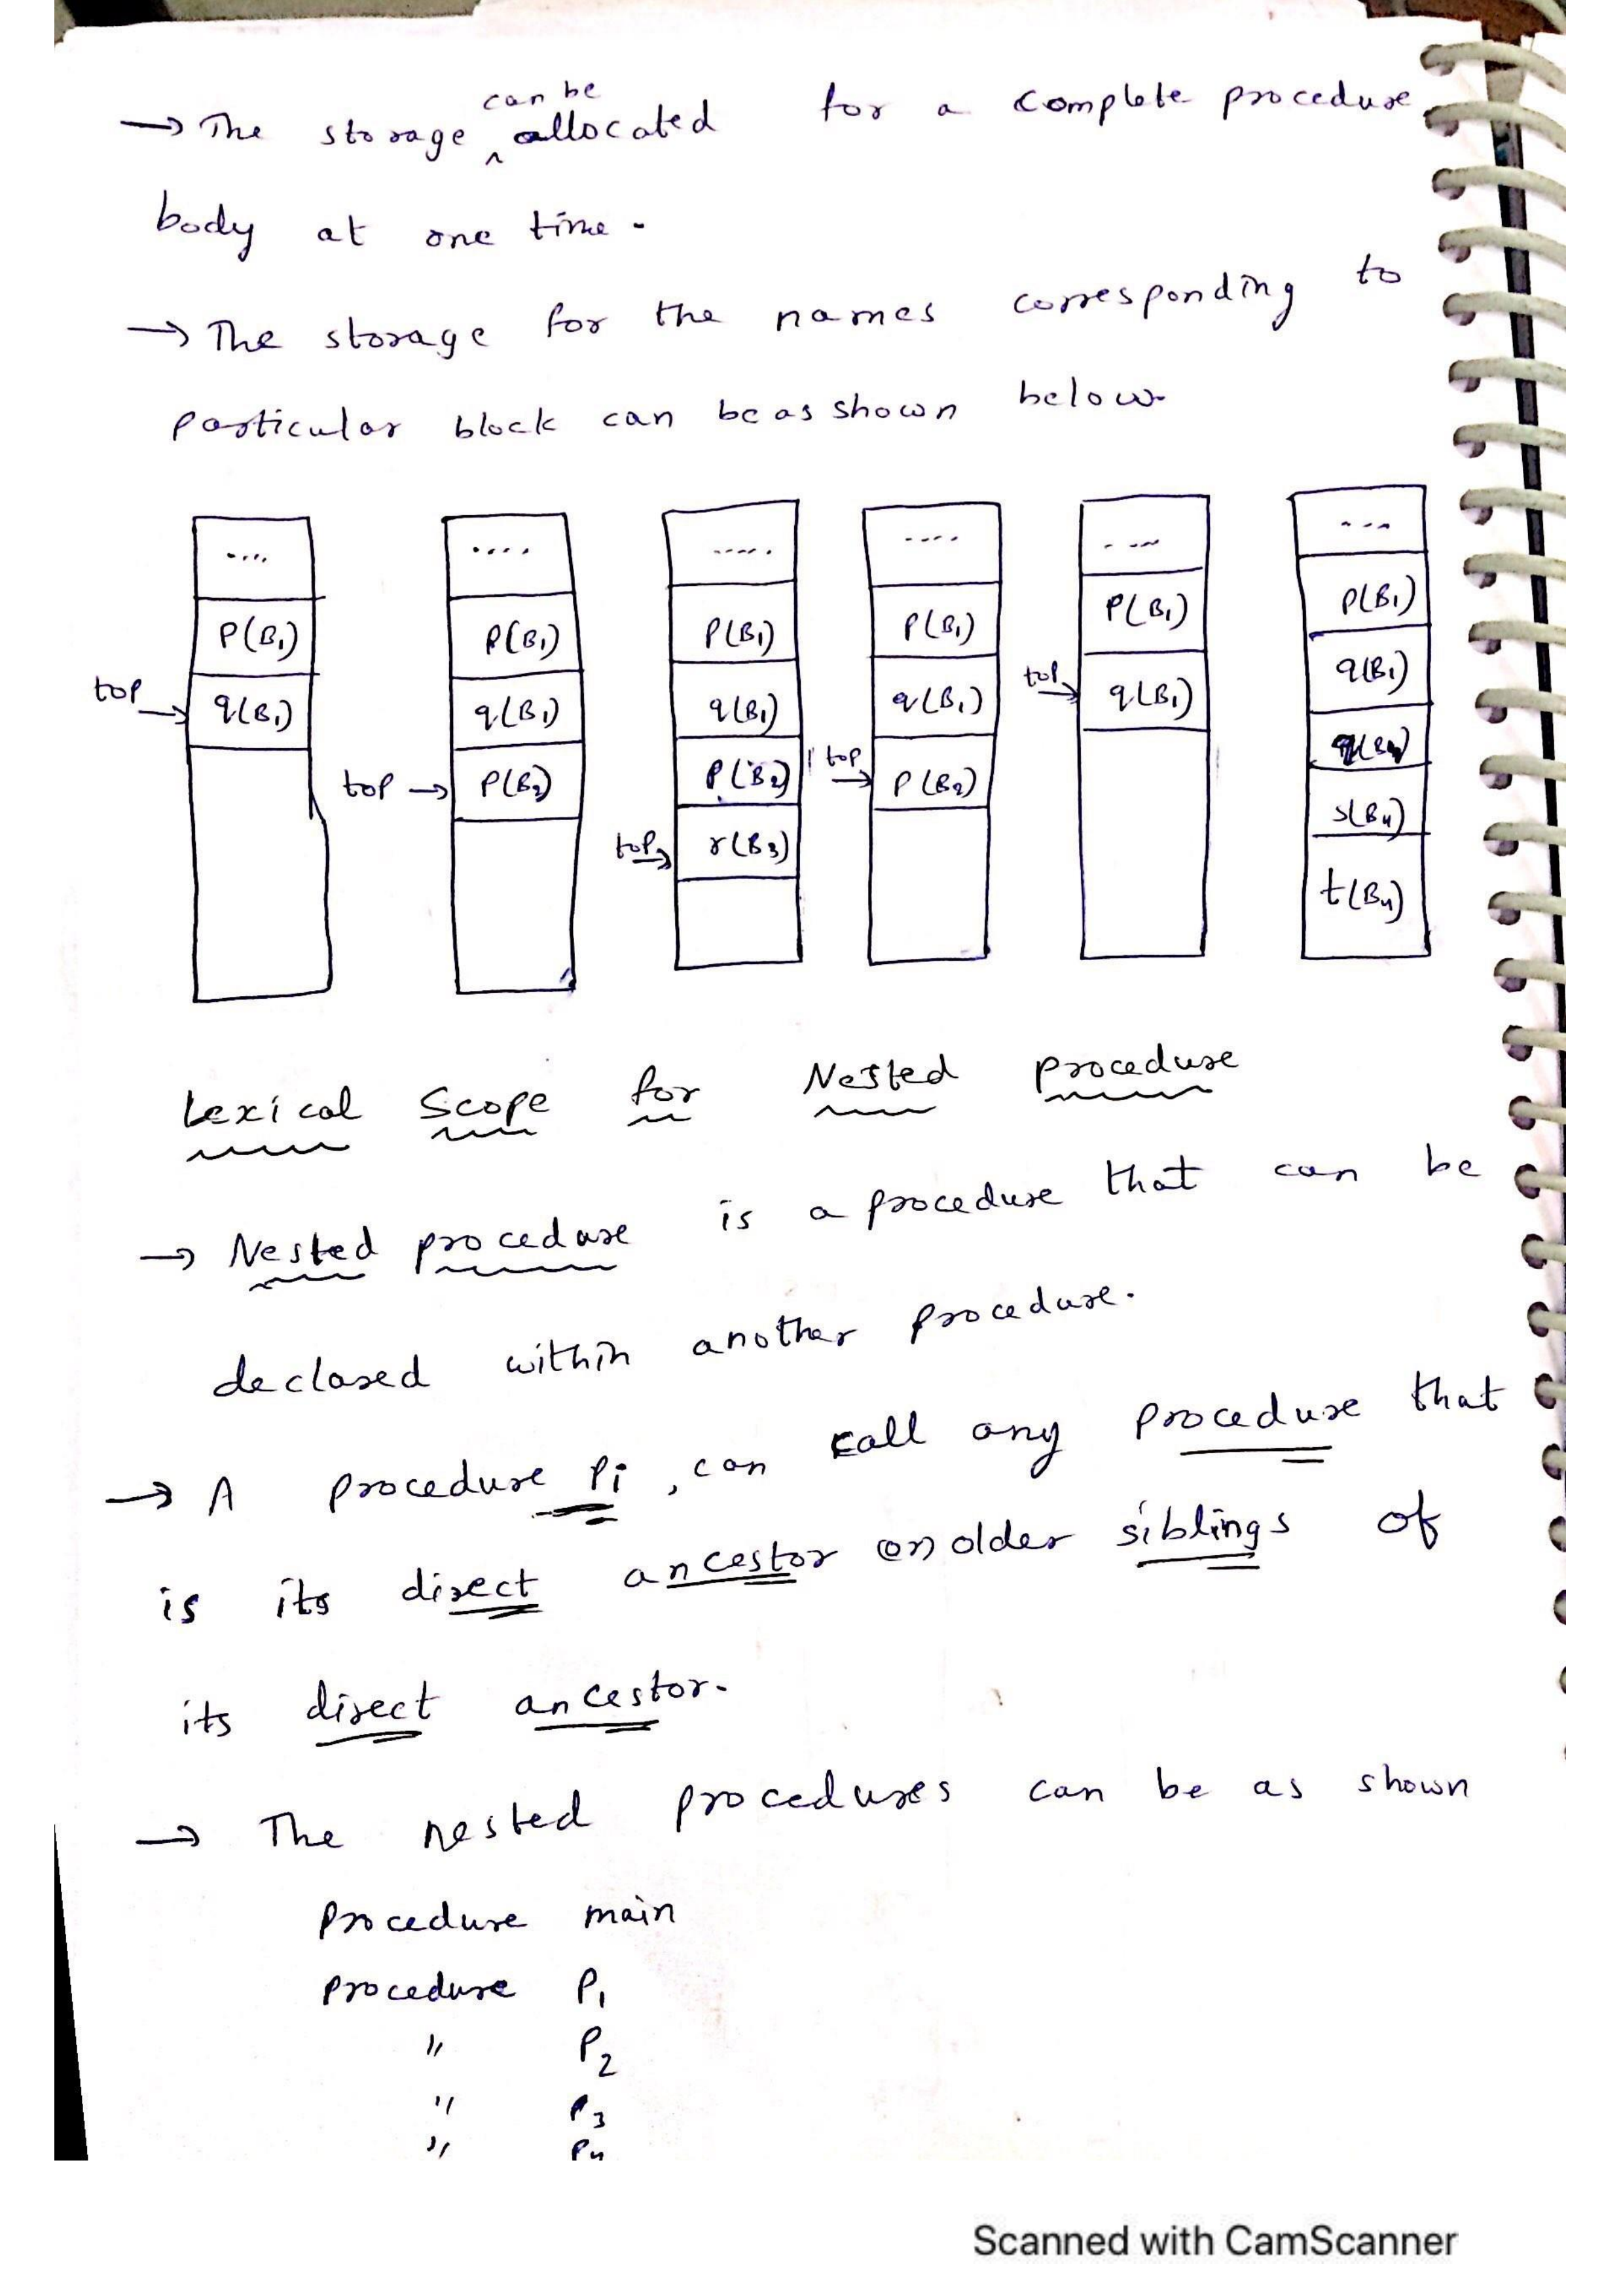 can be
→ The storage ‸ allocated for a complete procedure
body at one time.
→ The storage for the names corresponding to
particular block can be as shown below.
.... .... ..... .... .... ...
P(B₁) P(B₁) P(B₁) P(B₁) P(B₁) P(B₁)
top → q(B₁) q(B₁) q(B₁) q(B₁) top → q(B₁) q(B₁)
top → P(B₂) P(B₂) top → P(B₂)
top → r(B₃) s(B₄)
t(B₄)
Lexical Scope for Nested Procedure
→ Nested procedure is a procedure that can be
declared within another procedure.
→ A procedure Pi, can call any procedure that
is its direct ancestor (or) older siblings of
its direct ancestor.
→ The nested procedures can be as shown
Procedure main
Procedure P₁
" P₂
" P₃
" P₄
Scanned with CamScanner